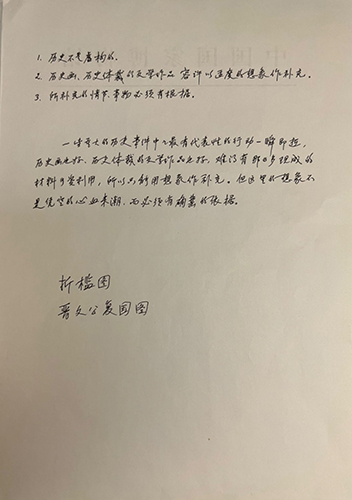 1. 历史不是虚构的.
2. 历史画、历史体裁的文学作品 容许以适度的想象作补充.
3. 所补充的情节.事物必须有根据.
一些重大的历史事件中之最有代表性的行动一瞬即逝,
历史画也好、历史体裁的文学作品也好, 难得有那么多现成的
材料可资利用, 所以只能用想象作补充. 但这里的想象不
是凭空的心血来潮, 而必须有确凿的依据.
折槛图
晋文公复国图